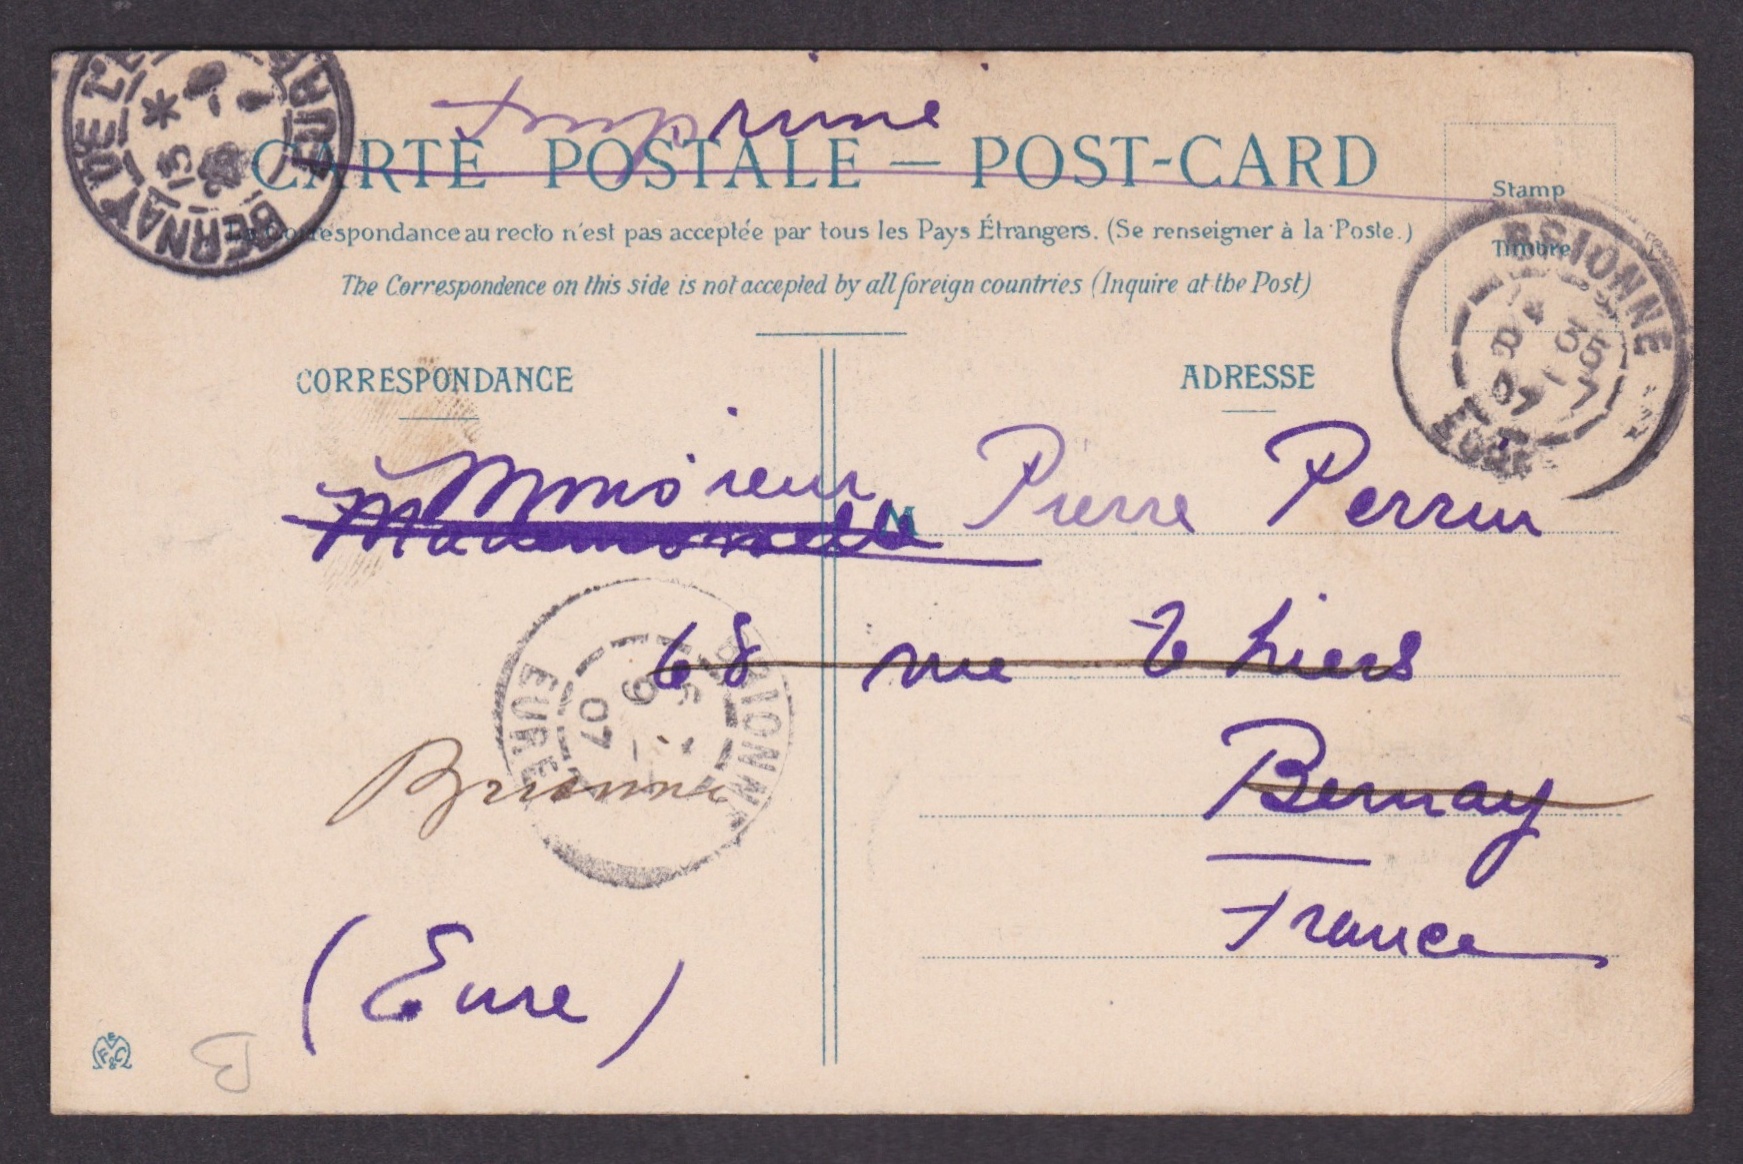 Imprimé
CARTE POSTALE — POST-CARD
La Correspondance au recto n'est pas acceptée par tous les Pays Étrangers. (Se renseigner à la Poste.)
The Correspondence on this side is not accepted by all foreign countries (Inquire at the Post)
Stamp
Timbre
BERNAY DE L'EURE
BRIONNE
35
07
EURE
CORRESPONDANCE
ADRESSE
Monsieur
Mademoiselle
M Pierre Perrin
68 rue Thiers
BRIONNE
9
07
EURE
Bernay
Brionne
France
(Eure)
B